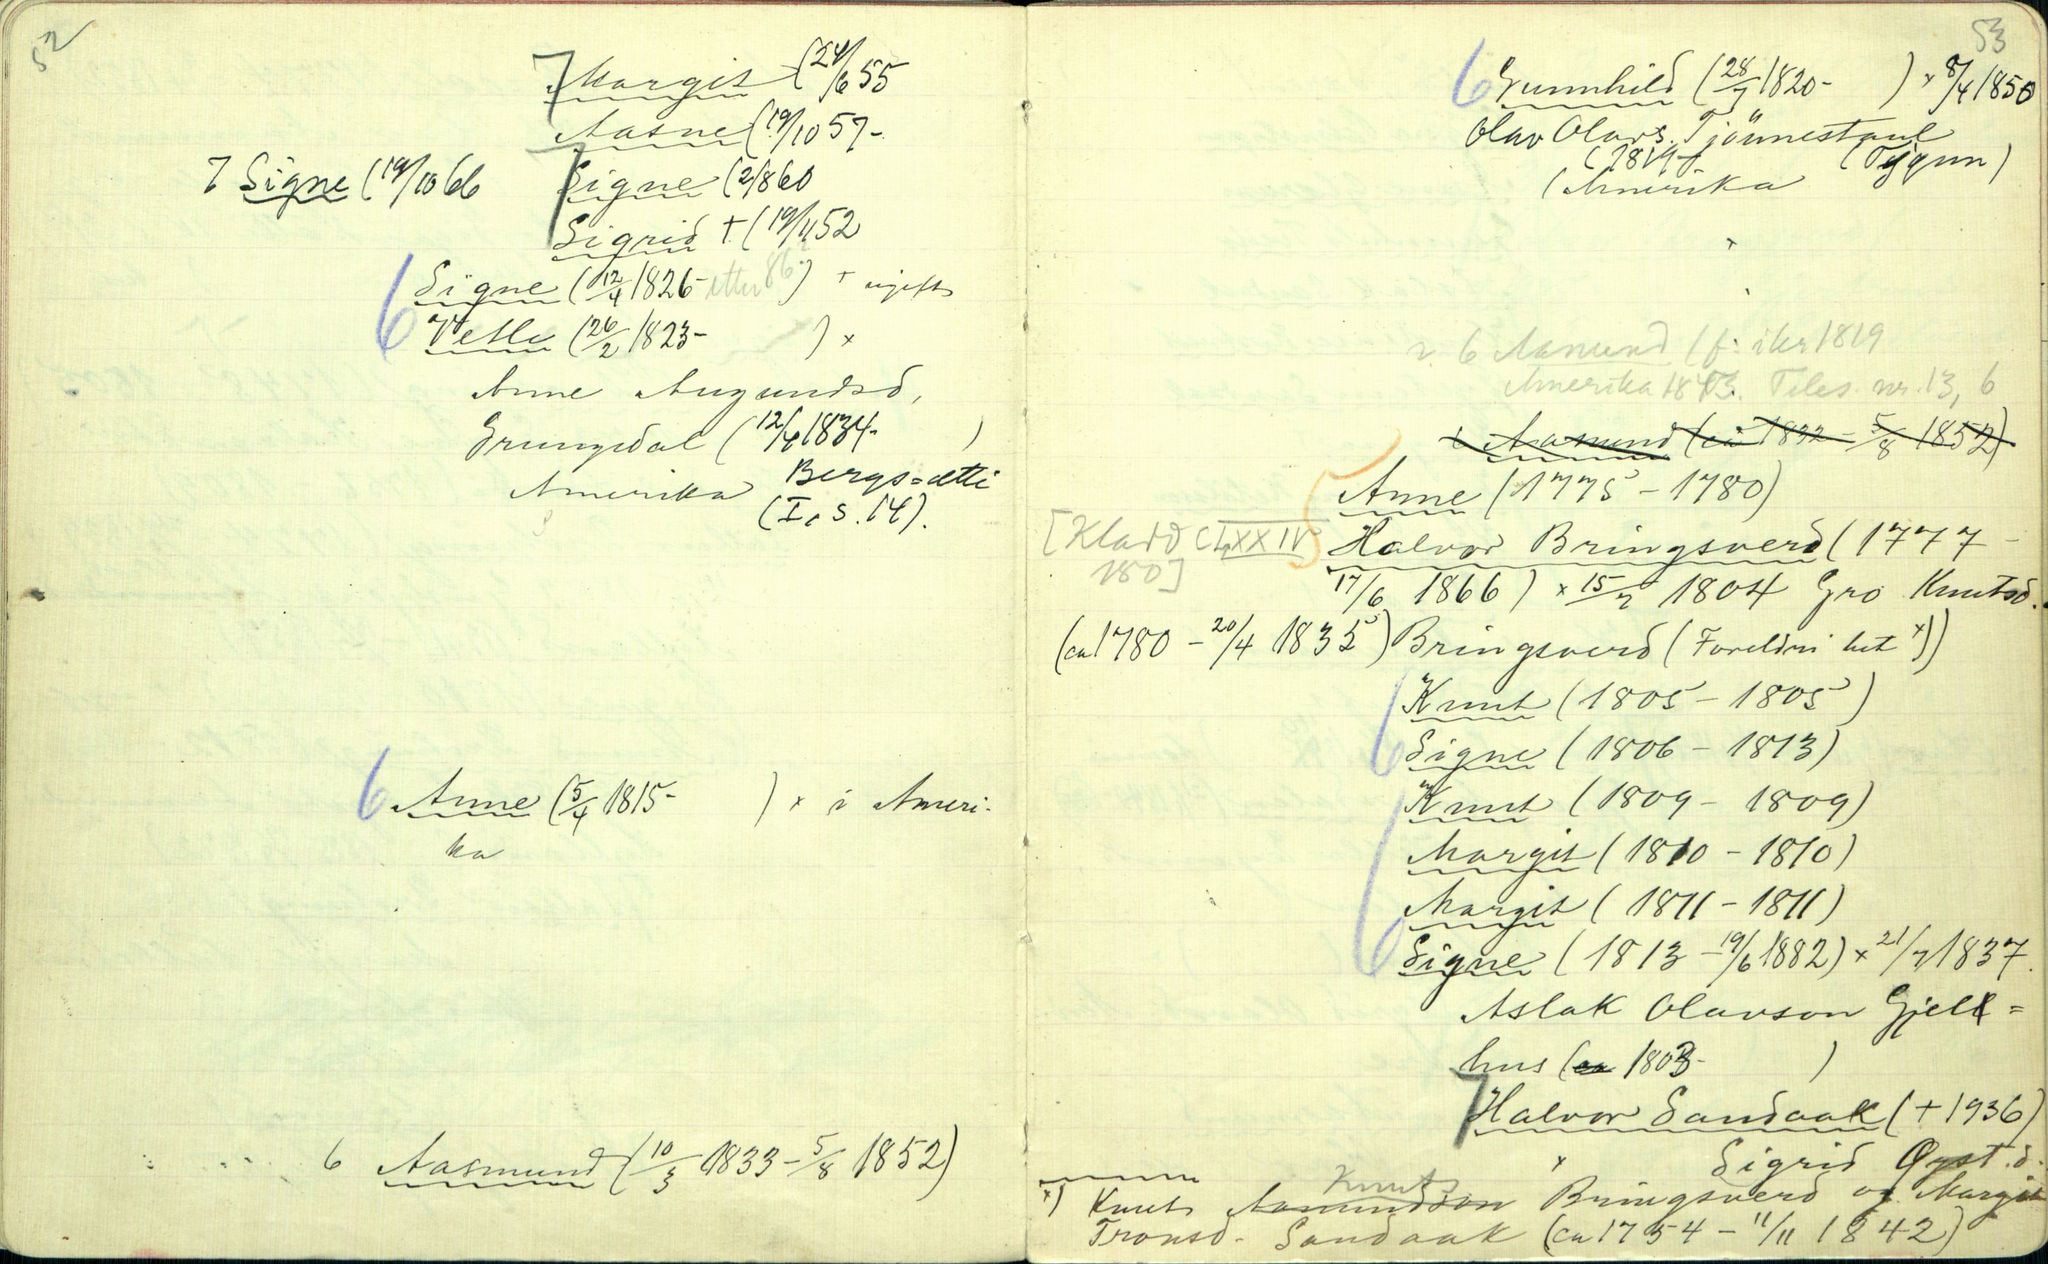 52
7 Margit (24/6 55
Aasne (19/10 57-
7 Signe (19/10 66
7 Signe (2/8 60
Sigrid + (19/11 52
6 Signe (12/4 1826- etter 86?) + ugift
Vetle (26/2 1823- ) ×
Anne Augundsd,
Grungedal (12/4 1834- )
Amerika Bergs=ætti
(I, s. 14).
6 Anne (5/4 1815- ) × i Ameri-
ka
6 Aasmund (10/3 1833-5/8 1852)
53
6 Gunnhild (28/7 1820- ) × 8/4 1850
Olav Olavs. Tjönnestaul
(1819-
(Amerika
6 Aasmund (f: ikr 1819
Amerika 1843. Teles. nr. 13, 6
Aasmund (ca 1832 - 5/8 1852)
5 Anne (1775 - 1780)
[Kladd CLXXIV
180]
5 Halvor Bringsverd (1777 -
17/6 1866) × 15/7 1804 Gro Knutsd.
(ca 1780 - 20/4 1835) Bringsverd (Foreldri het ×))
6 Knut (1805 - 1805)
Signe (1806 - 1813)
6 Knut (1809 - 1809)
Margit (1810 - 1810)
Margit (1811 - 1811)
Signe (1813 - 19/6 1882) × 21/7 1837.
Aslak Olavson Gjel=
hus (ca 1803- )
7 Halvor Sandaak (+ 1936)
× Sigrid Øyst.d.
×) Knut Aamundson Knuts Bringsverd og Margit
Tronsd. Sandaak (ca 1754 - 11/11 1842)